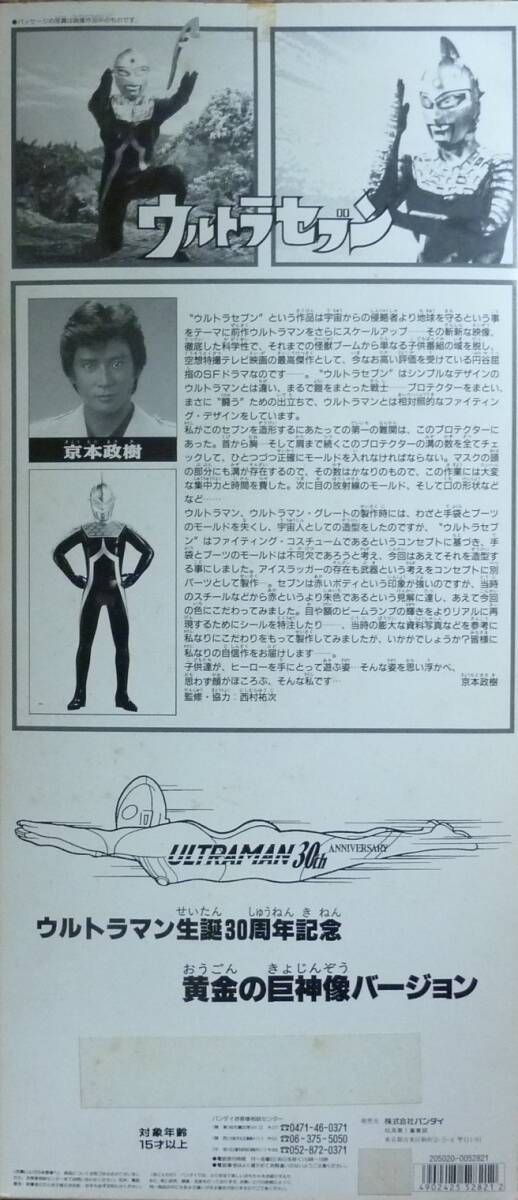 ●パッケージの写真は映像作品中のものです。
ウルトラセブン
京本政樹
“ウルトラセブン”という作品は宇宙からの侵略者より地球を守るという事
をテーマに前作ウルトラマンをさらにスケールアップ──その斬新な映像、
徹底した科学性で、それまでの怪獣ブームから単なる子供番組の域を脱し、
空想特撮テレビ映画の最高傑作として、今なお高い評価を受けている円谷屈
指のSFドラマなのです──。“ウルトラセブン”はシンプルなデザインの
ウルトラマンとは違い、まるで鎧をまとった戦士──プロテクターをまとい、
まさに“闘う”ための出立ちで、ウルトラマンとは相対照的なファイティン
グ・デザインをしています。
私がこのセブンを造形するにあたっての第一の難関は、このプロテクターに
あった。首から胸─そして肩まで続くこのプロテクターの溝の数を全てチェ
ックして、ひとつづつ正確にモールドを入れなければならない。マスクの頭
の部分にも溝が存在するので、その数はかなりのもので、この作業には大変
な集中力と時間を費した。次に目の放射線のモールド、そして口の形状など
など……
ウルトラマン、ウルトラマン・グレートの製作時には、わざと手袋とブーツ
のモールドを失くし、宇宙人としての造型をしたのですが、“ウルトラセブ
ン”はファイティング・コスチュームであるというコンセプトに基づき、手
袋とブーツのモールドは不可欠であろうと考え、今回はあえてそれを造型す
る事にしました。アイスラッガーの存在も武器という考えをコンセプトに別
パーツとして製作─。セブンは赤いボディという印象が強いのですが、当時
のスチールなどから赤というより朱色であるという見解に達し、あえて今回
の色にこだわってみました。目や額のビームランプの輝きをよりリアルに再
現するためにシールを特注したり──、当時の膨大な資料写真などを参考に
私なりにこだわりをもって製作してみましたが、いかがでしょうか？皆様に
私なりの自信作をお届けします──。
子供達が、ヒーローを手にとって遊ぶ姿─そんな姿を思い浮かべ、
思わず顔がほころぶ、そんな私です…　京本政樹
監修・協力：西村祐次
ULTRAMAN 30th ANNIVERSARY
ウルトラマン生誕30周年記念
黄金の巨神像バージョン
対象年齢
15才以上
バンダイお客様相談センター
☎0471-46-0371
☎06-375-5050
☎052-872-0371
発売元 株式会社バンダイ
205020-0052821
4902425528212